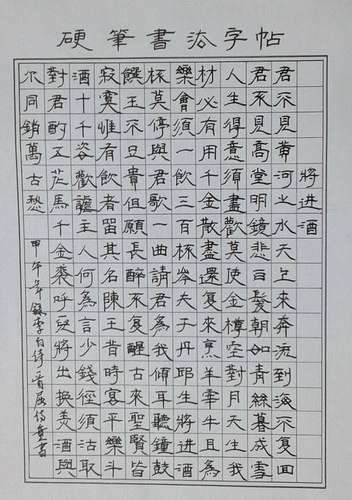 硬筆書法字帖
將进酒
君不見黃河之水天上來奔流到海不复回
君不見高堂明鏡悲白髮朝如青絲暮成雪
人生得意須盡歡莫使金樽空對月天生我
材必有用千金散盡還复來烹羊宰牛且為
樂會須一飲三百杯岑夫子丹邱生將進酒
杯莫停與君歌一曲請君為我傾耳聽鐘鼓
饌玉不足貴但願長醉不复醒古來聖賢皆
寂寞惟有飲者留其名陳王昔時宴平樂斗
酒十千恣歡謔主人何為言少錢徑須沽取
對君酌五花馬千金裘呼兒將出換美酒與
尔同銷萬古愁
甲午年錄李白詩書